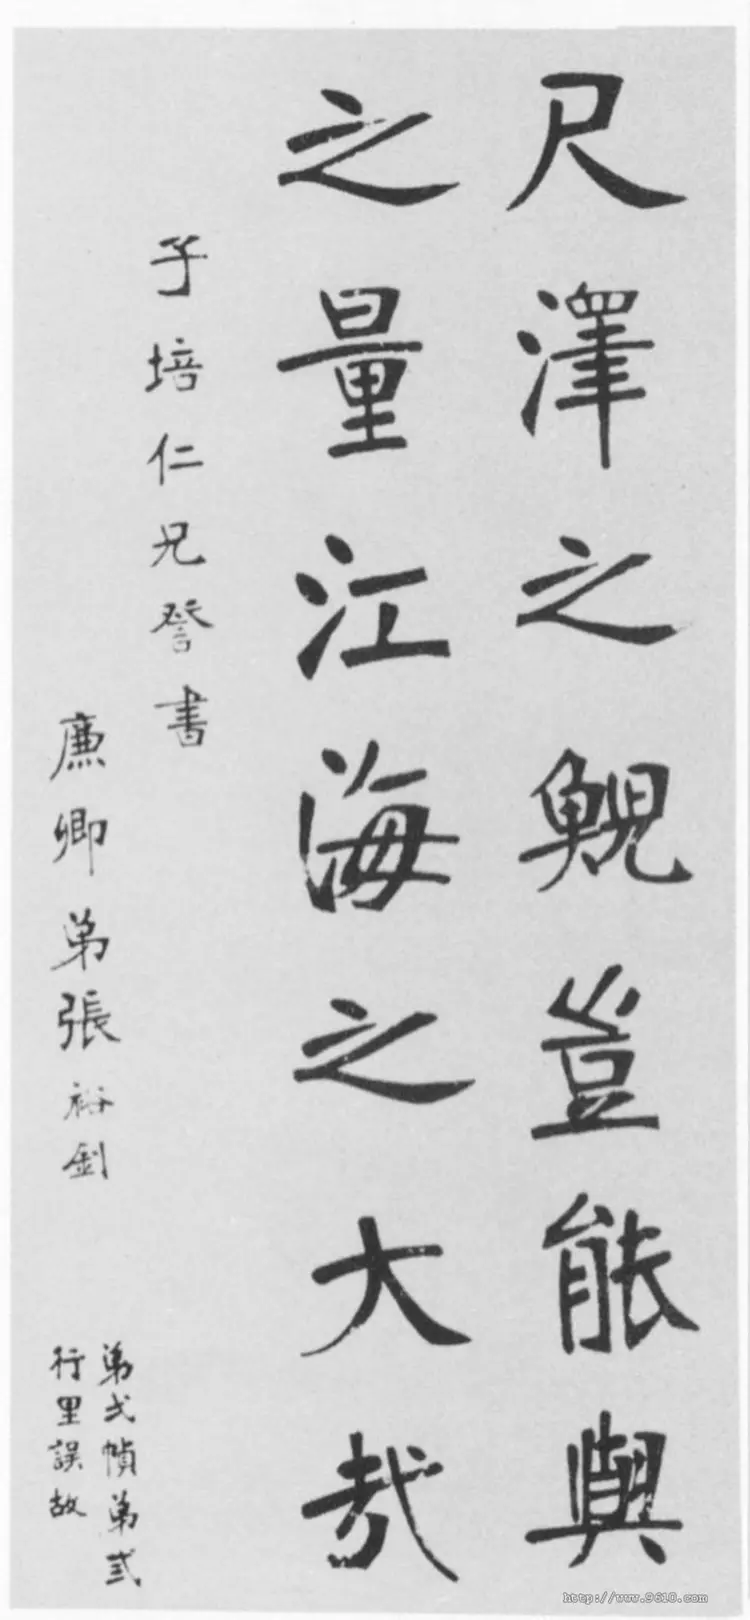 尺澤之鯢豈能與
之量江海之大哉
子培仁兄詧書
廉卿弟張裕釗
弟弍幀弟弍
行里誤故
http://www.9610.com